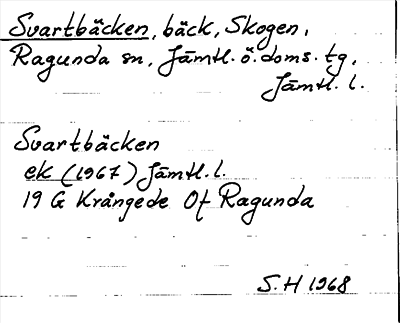 Svartbäcken, bäck, Skogen,
Ragunda sn, Jämtl. ö. doms. tg,
Jämtl. l.
Svartbäcken
ek (1967) Jämtl. l.
19 G Krångede Of Ragunda
S. H 1968